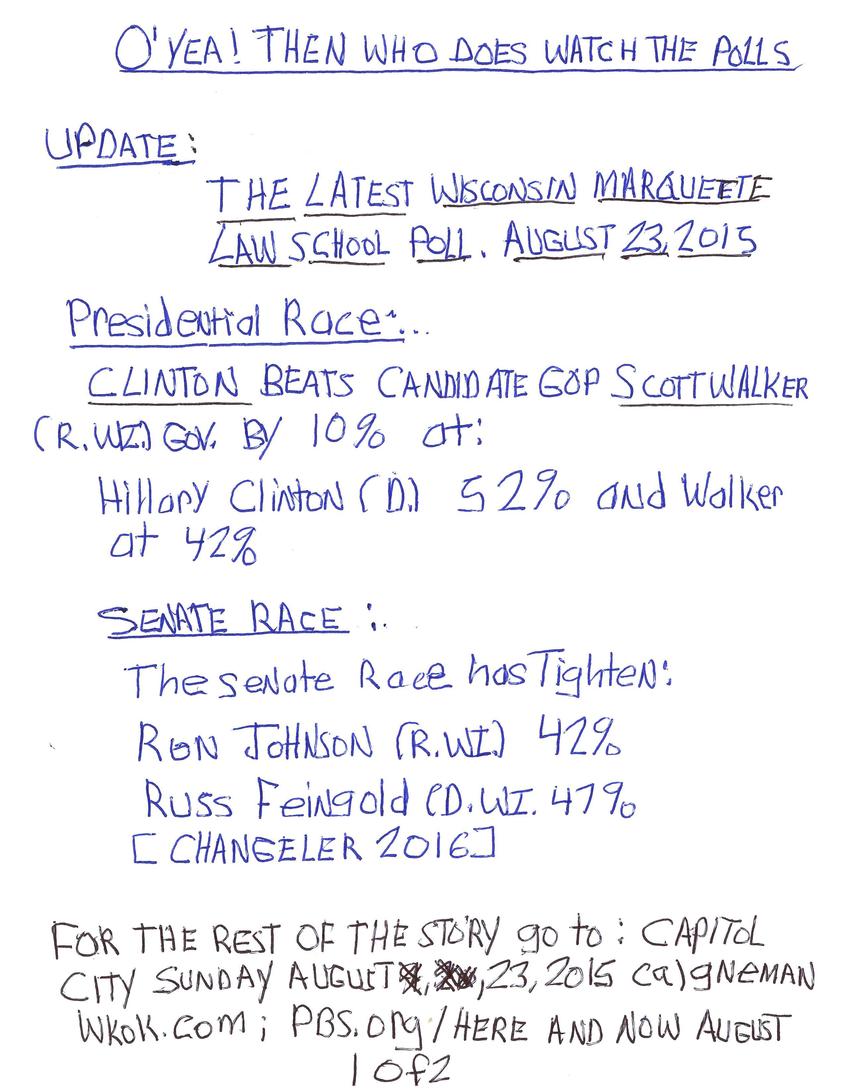 O'YEA! THEN WHO DOES WATCH THE POLLS
UPDATE:
THE LATEST WISCONSIN MARQUEETE
LAW SCHOOL POLL. AUGUST 23, 2015
Presidential Race:...
CLINTON BEATS CANDIDATE GOP SCOTT WALKER
(R.WI.) GOV. By 10% at:
Hillary Clinton (D.) 52% and Walker
at 42%
SENATE RACE :.
The senate Race has Tighten:
RON JOHNSON (R.WI.) 42%
Russ Feingold (D.WI. 47%
[CHANGELER 2016]
FOR THE REST OF THE STORY go to: CAPITOL
CITY SUNDAY AUGUST , 23, 2015 Ca)gNeMAN
WKOK.COM; PBS.org/HERE AND NOW AUGUST
1 of 2